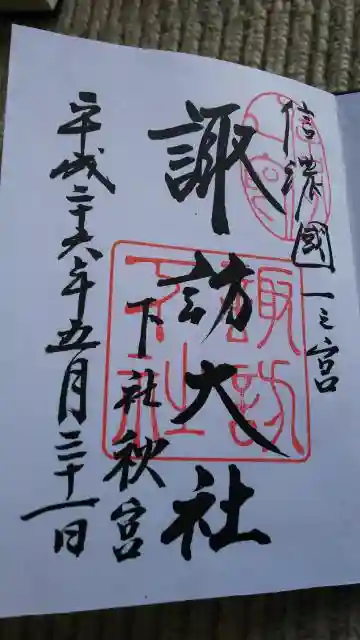 信濃國一之宮
諏訪大社
下社秋宮
平成二十六年五月三十一日
諏訪
下社